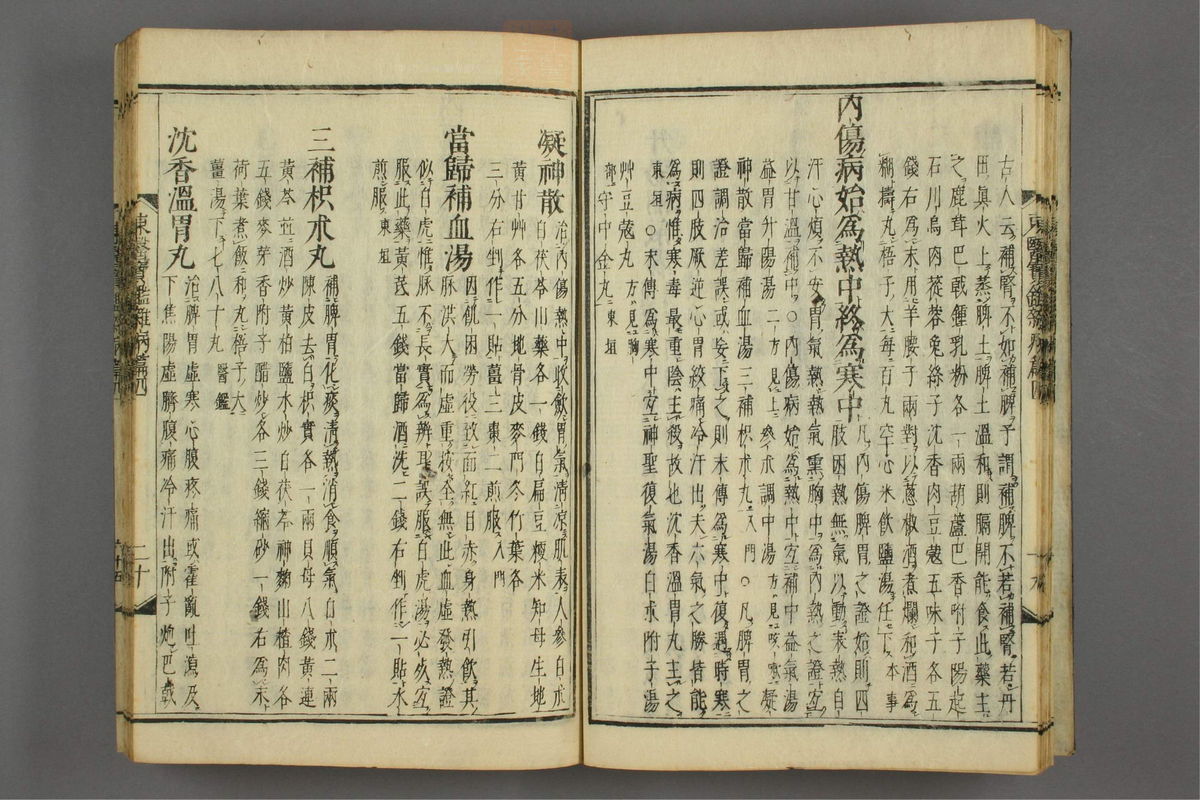 古人云補腎不如補脾予謂補脾不若補腎若丹
田眞火上蒸脾土脾土溫和則膈開能食此藥主
之鹿茸巴戟鍾乳粉各一兩葫蘆巴香附子陽起
石川烏肉蓯蓉兔絲子沈香肉豆蔲五味子各五
錢右爲末用羊腰子兩對以葱椒酒煮爛和酒爲
糊擣丸梧子大每百丸空心米飮鹽湯任下本事
內傷病始爲熱中終爲寒中凡內傷脾胃之證始則四
肢困熱無氣以動表熱自
汗心煩不安胃氣熱熱氣熏胸中爲內熱之證宜
以甘溫補中○內傷病始爲熱中宜補中益氣湯
益胃升陽湯二方見上參朮調中湯方見咳嗽凝
神散當歸補血湯三補枳朮丸入門○凡脾胃之
證調治差誤或妄下之則末傳爲寒中復遇時寒
則四肢厥逆心胃絞痛冷汗出夫六氣之勝皆能
爲病惟寒毒最重陰主殺故也沈香溫胃丸主之
東垣○末傳爲寒中宜神聖復氣湯白朮附子湯
艸豆蔲丸方見胸部守中金丸東垣
東醫寶鑑雜病篇四
十九
凝神散治內傷熱中收飮胃氣淸凉肌表人參白朮
白茯苓山藥各一錢白扁豆粳米知母生地
黃甘艸各五分地骨皮麥門冬竹葉各
三分右剉作一貼薑三棗二煎服入門
當歸補血湯因飢困勞役致面紅目赤身熱引飮其
脉洪大而虛重按全無此血虛發熱證
似白虎惟脉不長實爲辨耳誤服白虎湯必死宜
服此藥黃芪五錢當歸酒洗二錢右剉作一貼水
煎服東垣
三補枳朮丸補脾胃化痰淸熱消食順氣白朮二兩
陳皮去白枳實各一兩貝母八錢黃連
黃芩並酒炒黃柏鹽水炒白茯苓神麴山楂肉各
五錢麥芽香附子醋炒各三錢縮砂一錢右爲末
荷葉煮飯和丸梧子大
薑湯下七八十丸醫鑑
沈香溫胃丸治脾胃虛寒心腹疼痛或霍亂吐瀉及
下焦陽虛臍腹痛冷汗出附子炮巴戟
東醫寶鑑雜病篇四
二十